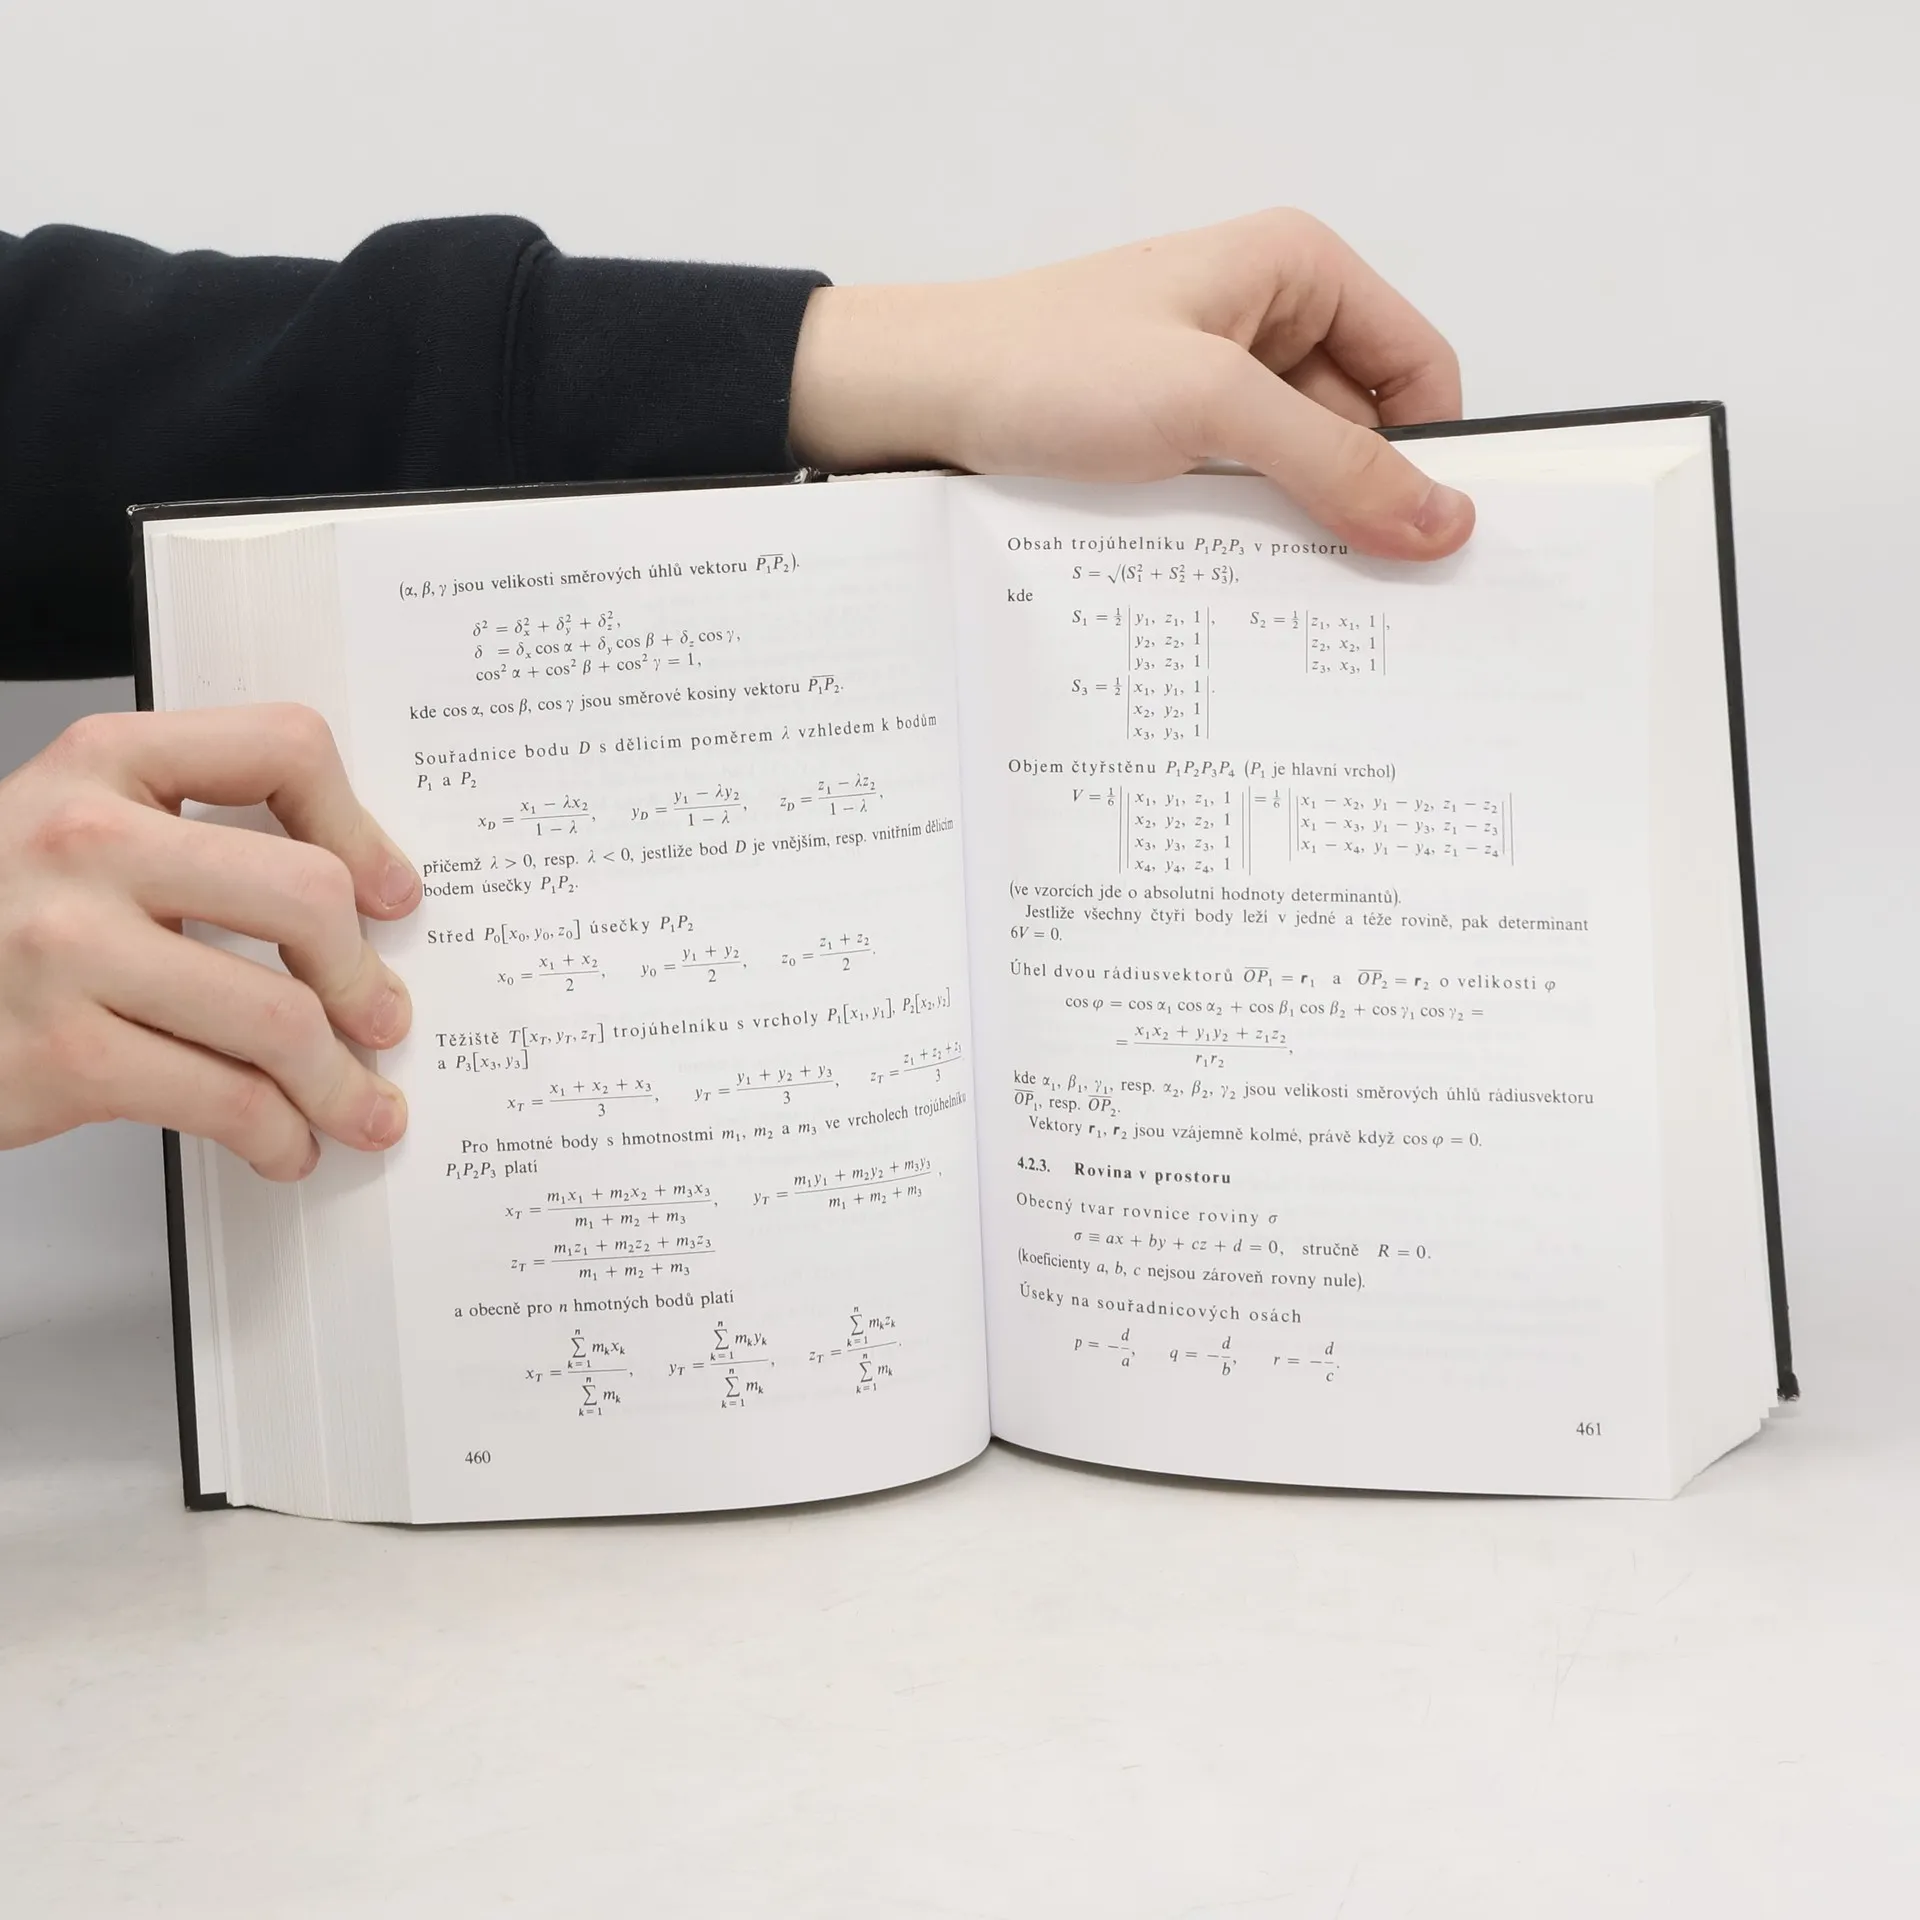 (α, β, γ jsou velikosti směrových úhlů vektoru P₁P₂).
δ² = δₓ² + δᵧ² + δ_z²,
δ = δₓ cos α + δᵧ cos β + δ_z cos γ,
cos² α + cos² β + cos² γ = 1,
kde cos α, cos β, cos γ jsou směrové kosiny vektoru P₁P₂.
Souřadnice bodu D s dělicím poměrem λ vzhledem k bodům
P₁ a P₂
x_D = (x₁ − λx₂)/(1 − λ), y_D = (y₁ − λy₂)/(1 − λ), z_D = (z₁ − λz₂)/(1 − λ),
přičemž λ > 0, resp. λ < 0, jestliže bod D je vnějším, resp. vnitřním dělicím
bodem úsečky P₁P₂.
Střed P₀[x₀, y₀, z₀] úsečky P₁P₂
x₀ = (x₁ + x₂)/2, y₀ = (y₁ + y₂)/2, z₀ = (z₁ + z₂)/2.
Těžiště T[x_T, y_T, z_T] trojúhelníku s vrcholy P₁[x₁, y₁], P₂[x₂, y₂]
a P₃[x₃, y₃]
x_T = (x₁ + x₂ + x₃)/3, y_T = (y₁ + y₂ + y₃)/3, z_T = (z₁ + z₂ + z₃)/3
Pro hmotné body s hmotnostmi m₁, m₂ a m₃ ve vrcholech trojúhelníku
P₁P₂P₃ platí
x_T = (m₁x₁ + m₂x₂ + m₃x₃)/(m₁ + m₂ + m₃), y_T = (m₁y₁ + m₂y₂ + m₃y₃)/(m₁ + m₂ + m₃),
z_T = (m₁z₁ + m₂z₂ + m₃z₃)/(m₁ + m₂ + m₃)
a obecně pro n hmotných bodů platí
x_T = (∑_{k=1}^{n} m_k x_k)/(∑_{k=1}^{n} m_k), y_T = (∑_{k=1}^{n} m_k y_k)/(∑_{k=1}^{n} m_k), z_T = (∑_{k=1}^{n} m_k z_k)/(∑_{k=1}^{n} m_k).
460
Obsah trojúhelníku P₁P₂P₃ v prostoru
S = √(S₁² + S₂² + S₃²),
kde
S₁ = ½ |y₁, z₁, 1|, S₂ = ½ |z₁, x₁, 1|,
|y₂, z₂, 1| |z₂, x₂, 1|
|y₃, z₃, 1| |z₃, x₃, 1|
S₃ = ½ |x₁, y₁, 1|.
|x₂, y₂, 1|
|x₃, y₃, 1|
Objem čtyřstěnu P₁P₂P₃P₄ (P₁ je hlavní vrchol)
V = ⅙ ||x₁, y₁, z₁, 1|| = ⅙ ||x₁ − x₂, y₁ − y₂, z₁ − z₂||
||x₂, y₂, z₂, 1|| ||x₁ − x₃, y₁ − y₃, z₁ − z₃||
||x₃, y₃, z₃, 1|| ||x₁ − x₄, y₁ − y₄, z₁ − z₄||
||x₄, y₄, z₄, 1||
(ve vzorcích jde o absolutní hodnoty determinantů).
Jestliže všechny čtyři body leží v jedné a téže rovině, pak determinant
6V = 0.
Úhel dvou rádiusvektorů OP₁ = r₁ a OP₂ = r₂ o velikosti φ
cos φ = cos α₁ cos α₂ + cos β₁ cos β₂ + cos γ₁ cos γ₂ =
= (x₁x₂ + y₁y₂ + z₁z₂)/(r₁r₂),
kde α₁, β₁, γ₁, resp. α₂, β₂, γ₂ jsou velikosti směrových úhlů rádiusvektoru
OP₁, resp. OP₂.
Vektory r₁, r₂ jsou vzájemně kolmé, právě když cos φ = 0.
4.2.3. Rovina v prostoru
Obecný tvar rovnice roviny σ
σ ≡ ax + by + cz + d = 0, stručně R = 0.
(koeficienty a, b, c nejsou zároveň rovny nule).
Úseky na souřadnicových osách
p = −d/a, q = −d/b, r = −d/c.
461